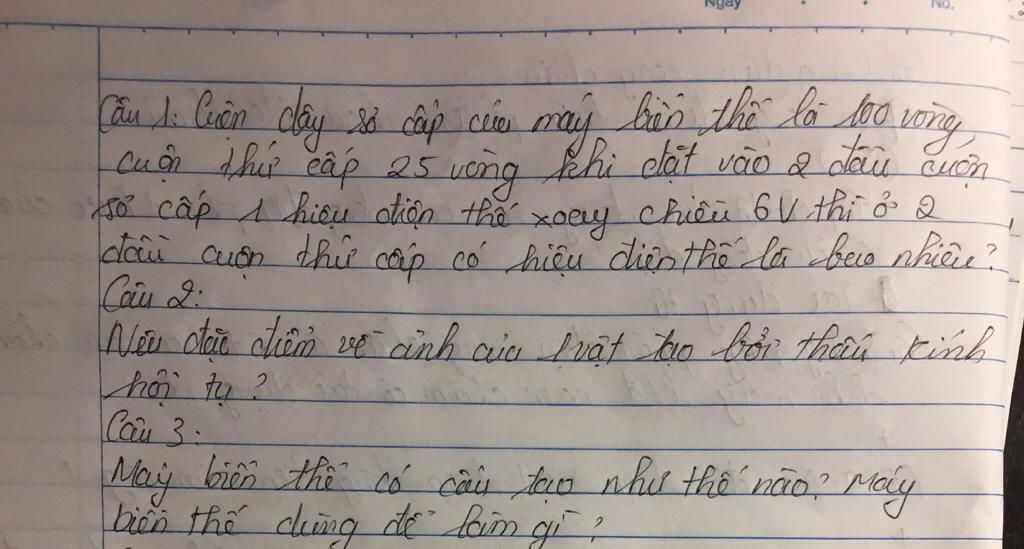 Ngày No.
Câu 1: Cuộn dây sơ cấp của máy biến thế là 100 vòng,
cuộn thứ cấp 25 vòng khi đặt vào 2 đầu cuộn
sơ cấp 1 hiệu điện thế xoay chiều 6V thì ở 2
đầu cuộn thứ cấp có hiệu điện thế là bao nhiêu?
Câu 2:
Nêu đặc điểm về ảnh của 1 vật tạo bởi thấu kính
hội tụ?
Câu 3:
Máy biến thế có cấu tạo như thế nào? Máy
biến thế dùng để làm gì?